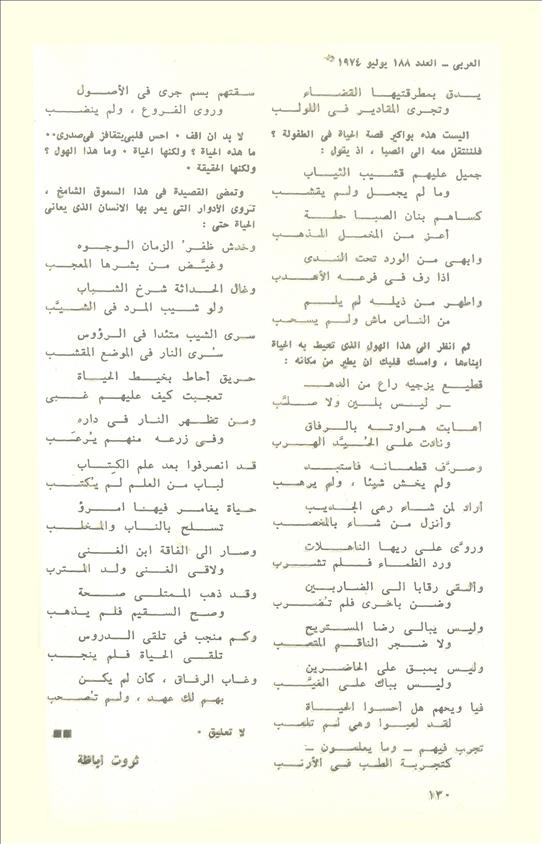 العربي - العدد ١٨٨ يوليو ١٩٧٤
يدق بمطرقتيها القضاء
وتجرى المقادير فى اللولب
اليست هذه بواكير قصة الحياة فى الطفولة ؟
فلننتقل معه الى الصبا ، اذ يقول :
جميل عليهم قشيب الثياب
وما لم يجمل ولم يقشب
كساهم بنان الصبا حلة
أعز من المخمل المذهب
وابهى من الورد تحت الندى
اذا رف فى فرعه الأهدب
واطهر من ذيله لم يلم
من الناس ماش ولم يسحب
ثم انظر الى هذا الهول الذى تحيط به الحياة
ابناءها ، وامسك قلبك ان يطير من مكانه :
قطيع يزجيه راع من الدهـ
ـر ليس بلين ولا صلب
أهابت هراوته بالرفاق
ونادت على الحيد الهرب
وصرف قطعانه فاستبد
ولم يخش شيئا ، ولم يرهب
أراد لمن شاء رعى الجديب
وأنزل من شاء بالمخصب
وروى على ريها الناهلات
ورد الظماء فلم تشرب
وألقى رقابا الى الضاربين
وضن باخرى فلم تضرب
وليس يبالى رضا المستريح
ولا ضجر الناقم المتعب
وليس بمبق على الحاضرين
وليس بباك على الغيب
فيا ويحهم هل أحسوا الحياة
لقد لعبوا وهى لم تلعب
تجرب فيهم - وما يعلمون -
كتجربة الطب فى الأرنب
سقتهم بسم جرى فى الأصول
وروى الفروع ، ولم ينضب
لا بد ان اقف ٠ احس قلبى يتقافز فى صدرى٠٠
ما هذه الحياة ؟ ولكنها الحياة ٠ وما هذا الهول ؟
ولكنها الحقيقة ٠
وتمضى القصيدة فى هذا السموق الشامخ ،
تروى الأدوار التى يمر بها الانسان الذى يعانى
الحياة حتى :
وخدش ظفر الزمان الوجوه
وغيض من بشرها المعجب
وغال الحداثة شرخ الشباب
ولو شيب المرد فى الشيب
سرى الشيب متئدا فى الرؤوس
سرى النار فى الموضع المعشب
حريق أحاط بخيط الحياة
تعجبت كيف عليهم غبى
ومن تظهر النار فى داره
وفى زرعه منهم يرعب
قد انصرفوا بعد علم الكتاب
لباب من العلم لم يكتب
حياة يغامر فيها امرؤ
تسلح بالناب والمخلب
وصار الى الفاقة ابن الغنى
ولاقى الغنى ولد المترب
وقد ذهب الممتلى صحة
وصح السقيم فلم يذهب
وكم منجب فى تلقى الدروس
تلقى الحياة فلم ينجب
وغاب الرفاق ، كان لم يكن
بهم لك عهد ، ولم تصحب
لا تعليق ٠
ثروت أباظة
١٣٠